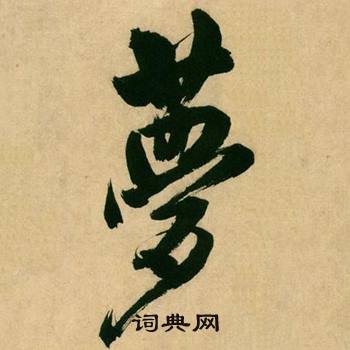 夢
词典网